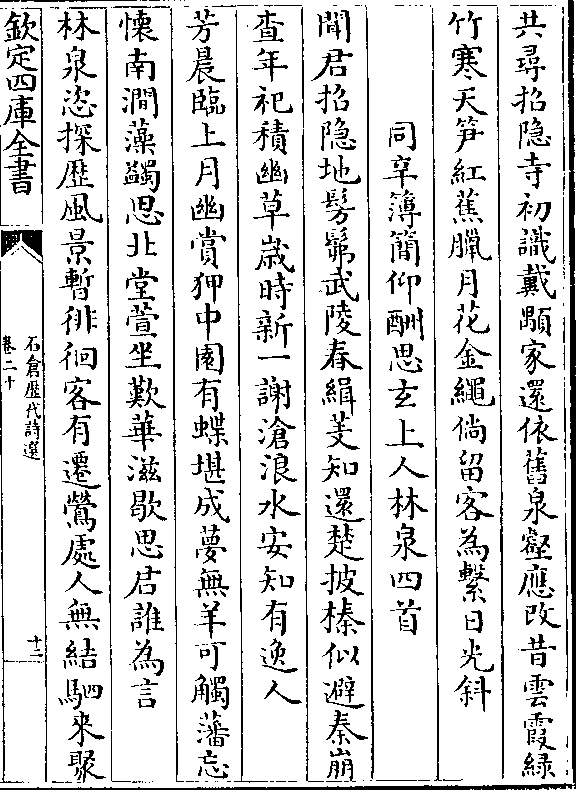 共尋招隐寺初識戴顒家還依舊泉壑應改昔雲霞緑
竹寒天笋紅蕉臘月花金繩倘留客為繫日光斜
同辛簿簡仰酬思玄上人林泉四首
聞君招隐地髣髴武陵春緝芰知還楚披榛似避秦崩
查年祀積幽草嵗時新一謝滄浪水安知有逸人
芳晨臨上月幽賞狎中園有蝶堪成夢無羊可觸藩忘
懐南澗藻蠲思北堂萱坐歎華滋歇思君誰為言
林泉恣探歴風景暫徘徊客有遷鶯處人無結駟來聚
欽定四庫全書
石倉歴代詩選
卷二十
十二